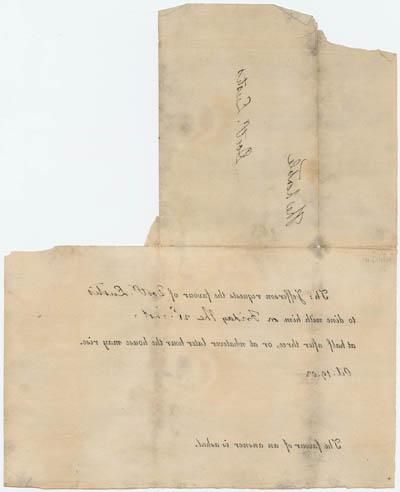 The Honble
Doctr. Eustis
Th: Jefferson requests the favour of Doctr. Eustis
to dine with him on Friday the 21st inst.
at half after three, or at whatever later hour the house may rise.
Oct. 19. 03
The favour of an answer is asked.